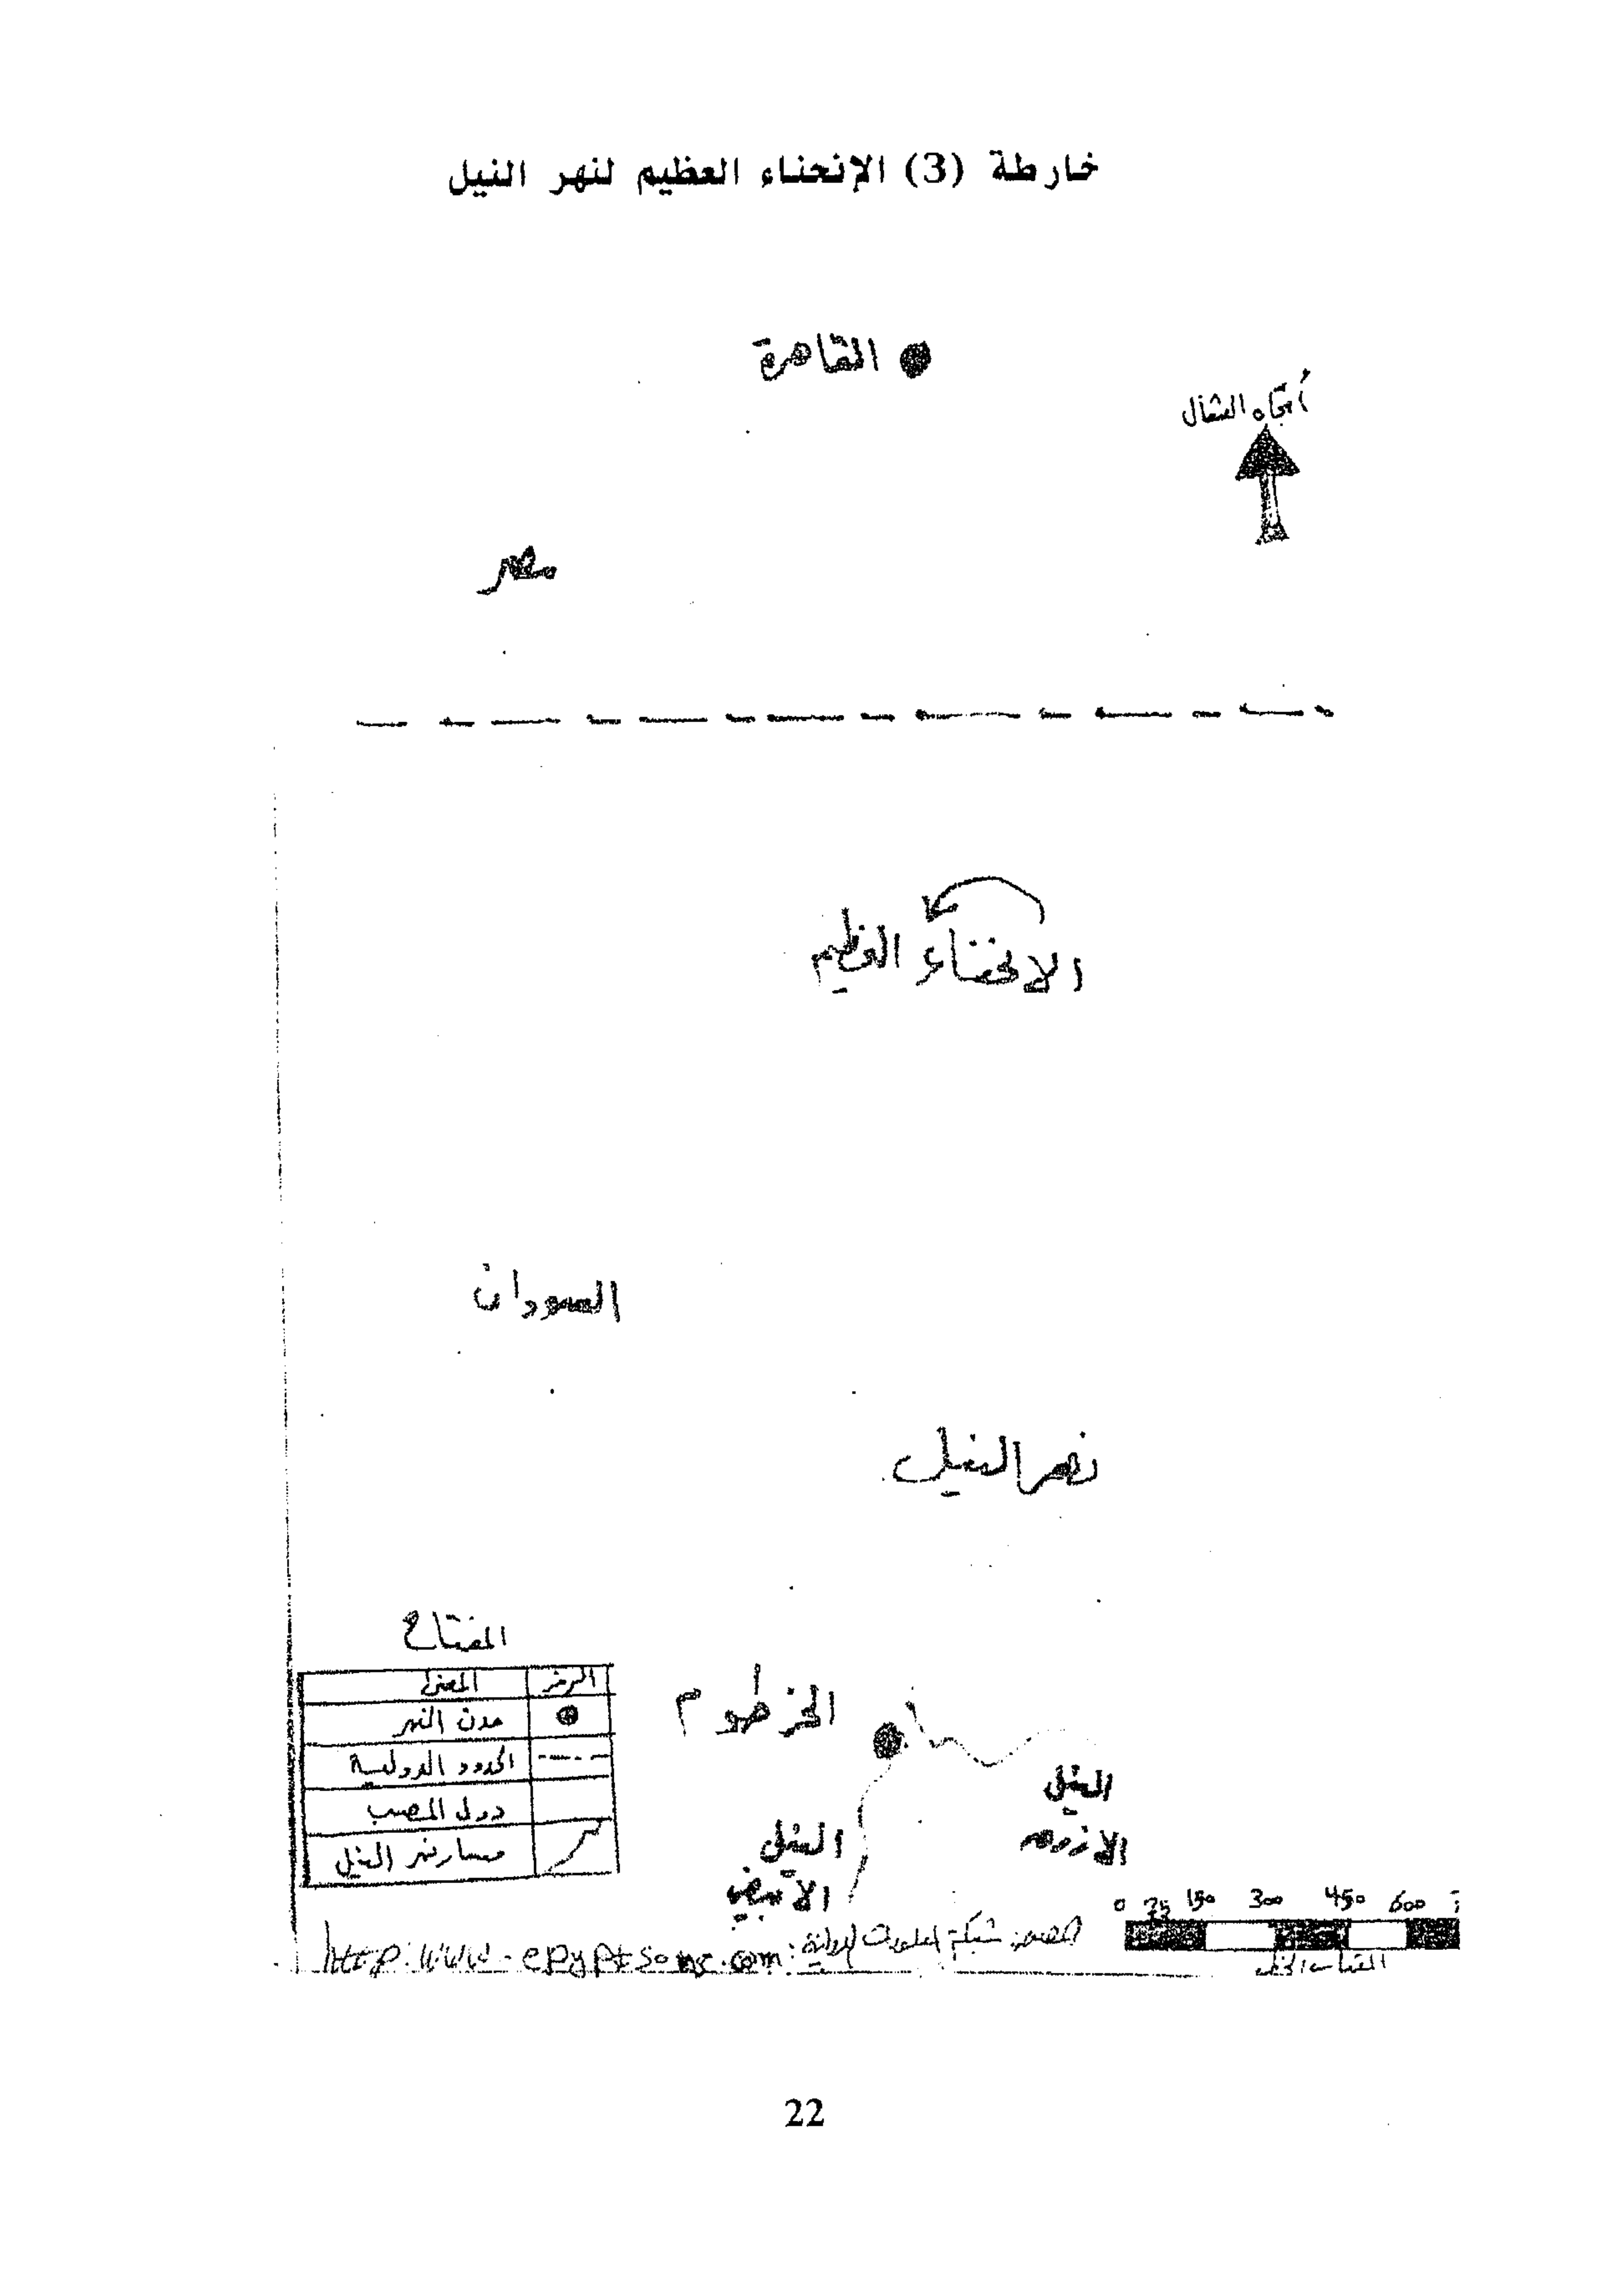 خارطة (3) الإنحناء العظيم لنهر النيل
القاهرة
اتجاه الشمال
مصر
الانحناء العظيم
السودان
نهر النيل
المفتاح
الرمز المعنى
مدن النهر
الحدود الدولية
دول المصب
مسار نهر النيل
الخرطوم
النيل
الازرق
النيل
الابيض
0 75 150 300 450 600
المصدر: شبكة المعلومات الدولية:
http:www.epyptsons.com
22